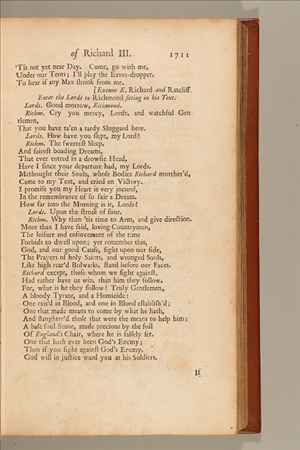 of Richard III. 1711
'Tis not yet near Day. Come, go with me,
Under our Tents; I'll play the Eaves-dropper,
To hear if any Man shrink from me.
[Exeunt K. Richard and Ratcliff.
Enter the Lords to Richmond sitting in his Tent.
Lords. Good morrow, Richmond.
Richm. Cry you mercy, Lords, and watchful Gen-
tlemen,
That you have ta'en a tardy Sluggard here.
Lords. How have you slept, my Lord?
Richm. The sweetest Sleep,
And fairest boading Dreams,
That ever entred in a drowsie Head,
Have I since your departure had, my Lords.
Methought their Souls, whose Bodies Richard murther'd,
Came to my Tent, and cried on Victory.
I promise you my Heart is very jocund,
In the remembrance of so fair a Dream.
How far into the Morning is it, Lords?
Lords. Upon the stroak of four.
Richm. Why then 'tis time to Arm, and give direction.
More than I have said, loving Countrymen,
The leisure and enforcement of the time
Forbids to dwell upon; yet remember this,
God, and our good Cause, fight upon our side,
The Prayers of holy Saints, and wronged Souls,
Like high rear'd Bulwarks, stand before our Faces.
Richard except, those whom we fight against,
Had rather have us win, than him they follow.
For, what is he they follow? Truly Gentlemen,
A bloody Tyrant, and a Homicide:
One rais'd in Blood, and one in Blood establish'd;
One that made means to come by what he hath,
And slaughter'd those that were the means to help him;
A base foul Stone, made precious by the foil
Of England's Chair, where he is falsely set.
One that hath ever been God's Enemy;
Then if you fight against God's Enemy,
God will in justice ward you as his Soldiers.
If